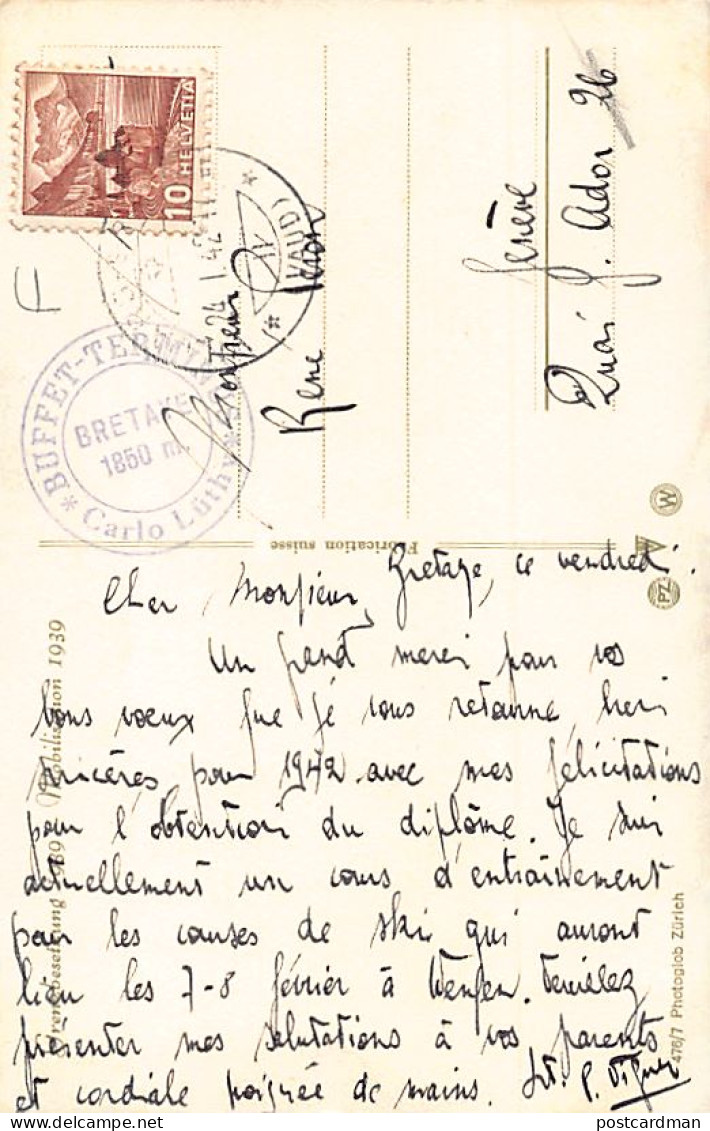 10 HELVETIA
24 I 42
(VAUD)
BUFFET-TERMINUS
BRETAYE
1850 m.
* Carlo Lüthy *
F
Monsieur
René
Quai G. Ador 26
Genève
Fabrication suisse
W
PZ
476/7 Photoglob Zürich
Grenzbesetzung 1939 Mobilisation 1939
Bretaye, ce vendredi.
Cher Monsieur,
Un grand merci pour vos
bons voeux que je vous retourne bien
sincères pour 1942 avec mes félicitations
pour l'obtention du diplôme. Je suis
actuellement un cours d'entraînement
pour les courses de ski qui auront
lieu les 7-8 février à Wengen. Veuillez
présenter mes salutations à vos parents
et cordiale poignée de mains.
postcardman